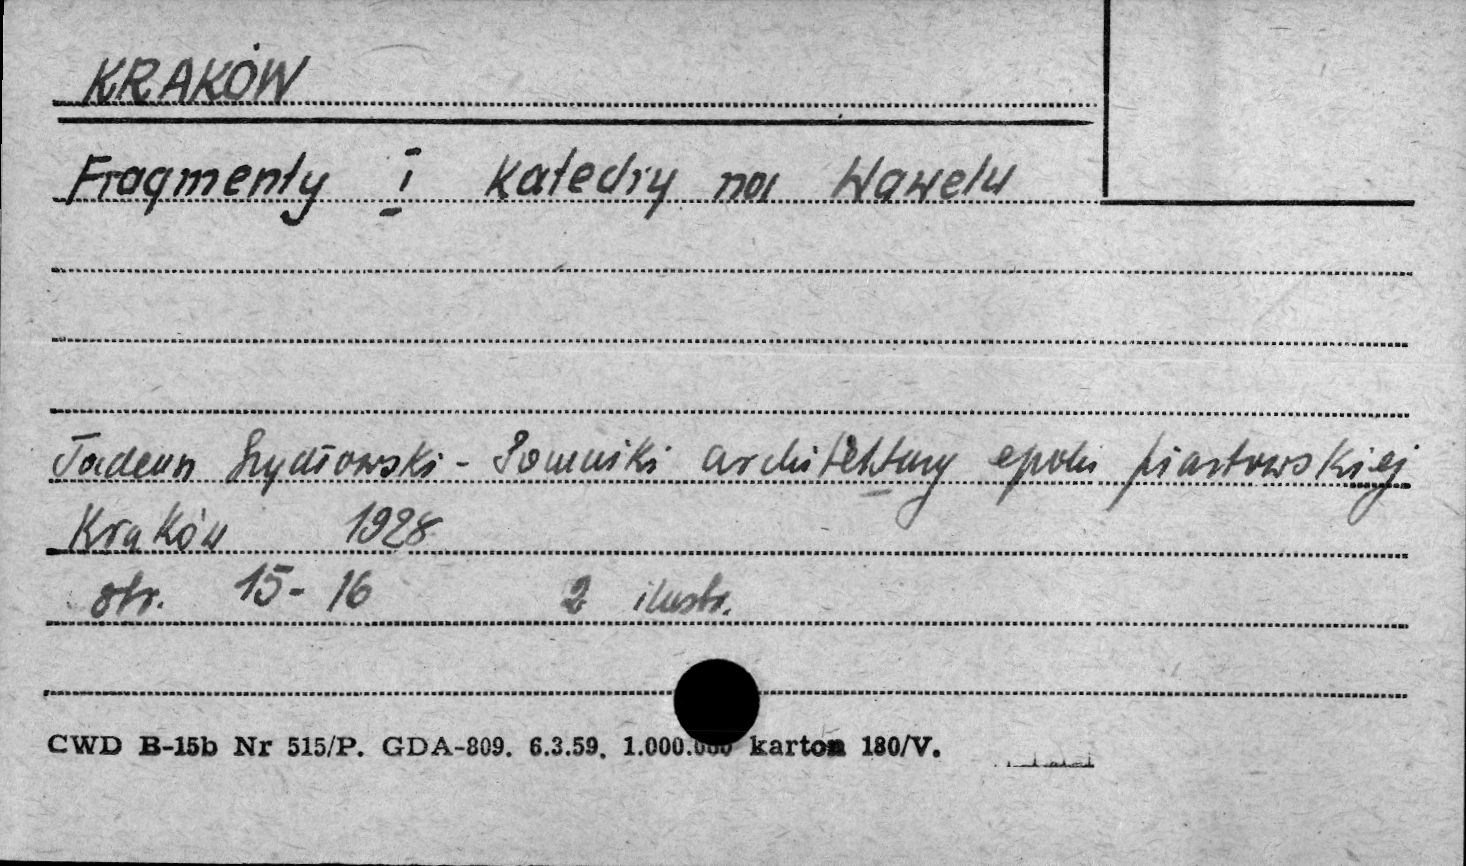 KRAKÓW
Fragmenty I Katedry na Wawelu
Tadeusz Szydłowski - Pomniki architektury epoki piastowskiej
Kraków 1928
str. 15-16 2 ilustr.
CWD B-15b Nr 515/P. GDA-809. 6.3.59. 1.000.000 karton 180/V.